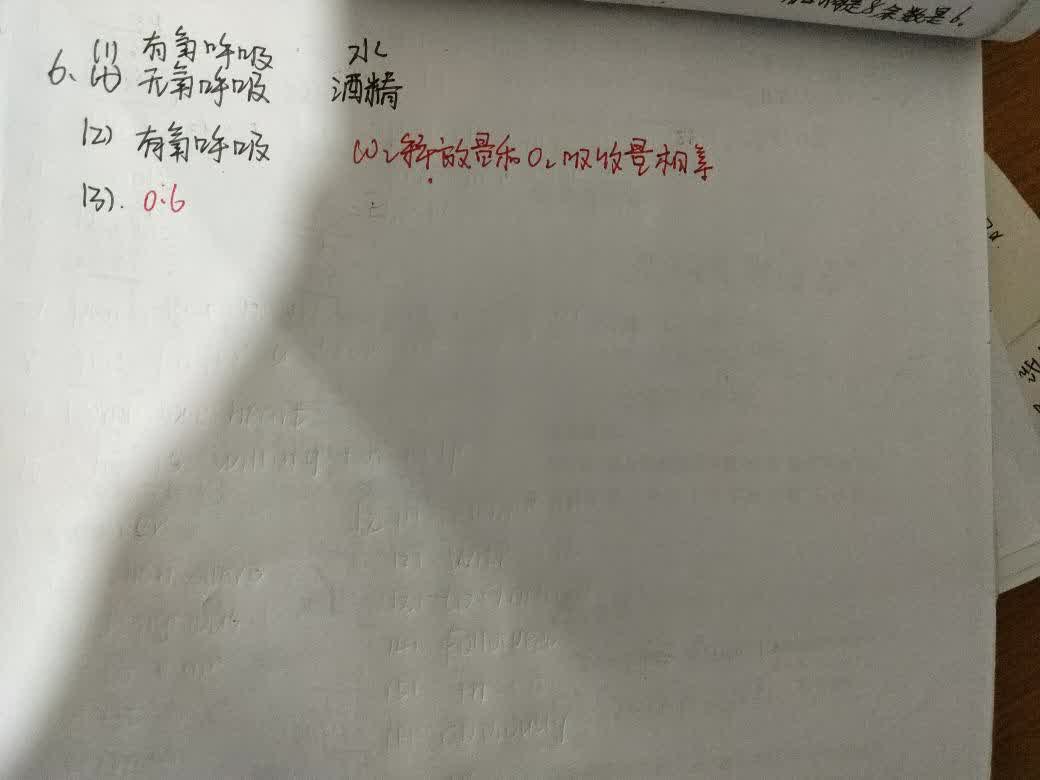 定8余数是6。
6、(1) 有氧呼吸 水
(2) 无氧呼吸 酒精
(2) 有氧呼吸 CO₂释放量和O₂吸收量相等
(3). 0.6